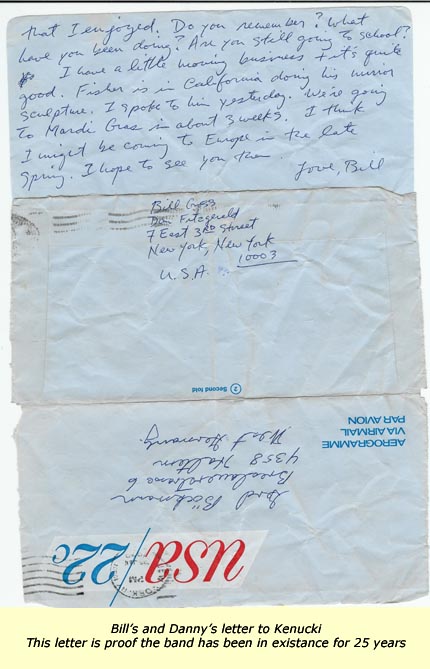 that I enjoyed. Do you remember? What
have you been doing? Are you still going to school?
I have a little moving business + it's quite
good. Fisher is in California doing his mirror
sculpture. I spoke to him yesterday. We're going
to Mardi Gras in about 3 weeks. I think
I might be coming to Europe in the late
Spring. I hope to see you then.
Love, Bill
Bill
Fitzgerald
7 East 3RD Street
New York, New York
10003
U.S.A.
2 Second fold
AEROGRAMME
VIA AIRMAIL
PAR AVION
Gerd Böckmann
Breslauerstrasse 6
4358 Haltern
West Germany
USA 22c
PM
Bill's and Danny's letter to Kenucki
This letter is proof the band has been in existance for 25 years